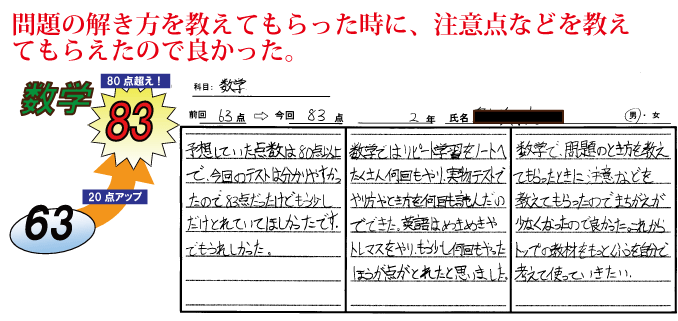 問題の解き方を教えてもらった時に、注意点などを教え
てもらえたので良かった。
80点超え！
数学
83
20点アップ
63
科目: 数学
前回 63点 ⇨ 今回 83点 2年 氏名 男・女
予想していた点数は80点以上
で、今回のテストは分かりやすかっ
たので83点だったけどもう少し
だけとれていてほしかったです。
でもうれしかった。
数学ではリピート学習をノートへ
たくさん何回もやり、実物テストで
やり方やとき方を何回も読んだの
でできた。英語はめきめきや
トレマスをやり、もう少し何回もやった
ほうが点がとれたと思いました。
数学で、問題のとき方を教え
てもらったときに注意などを
教えてもらったのでまちがえが
少なくなったので良かった。これから
トップの教材をもっと を自分で
考えて使っていきたい。